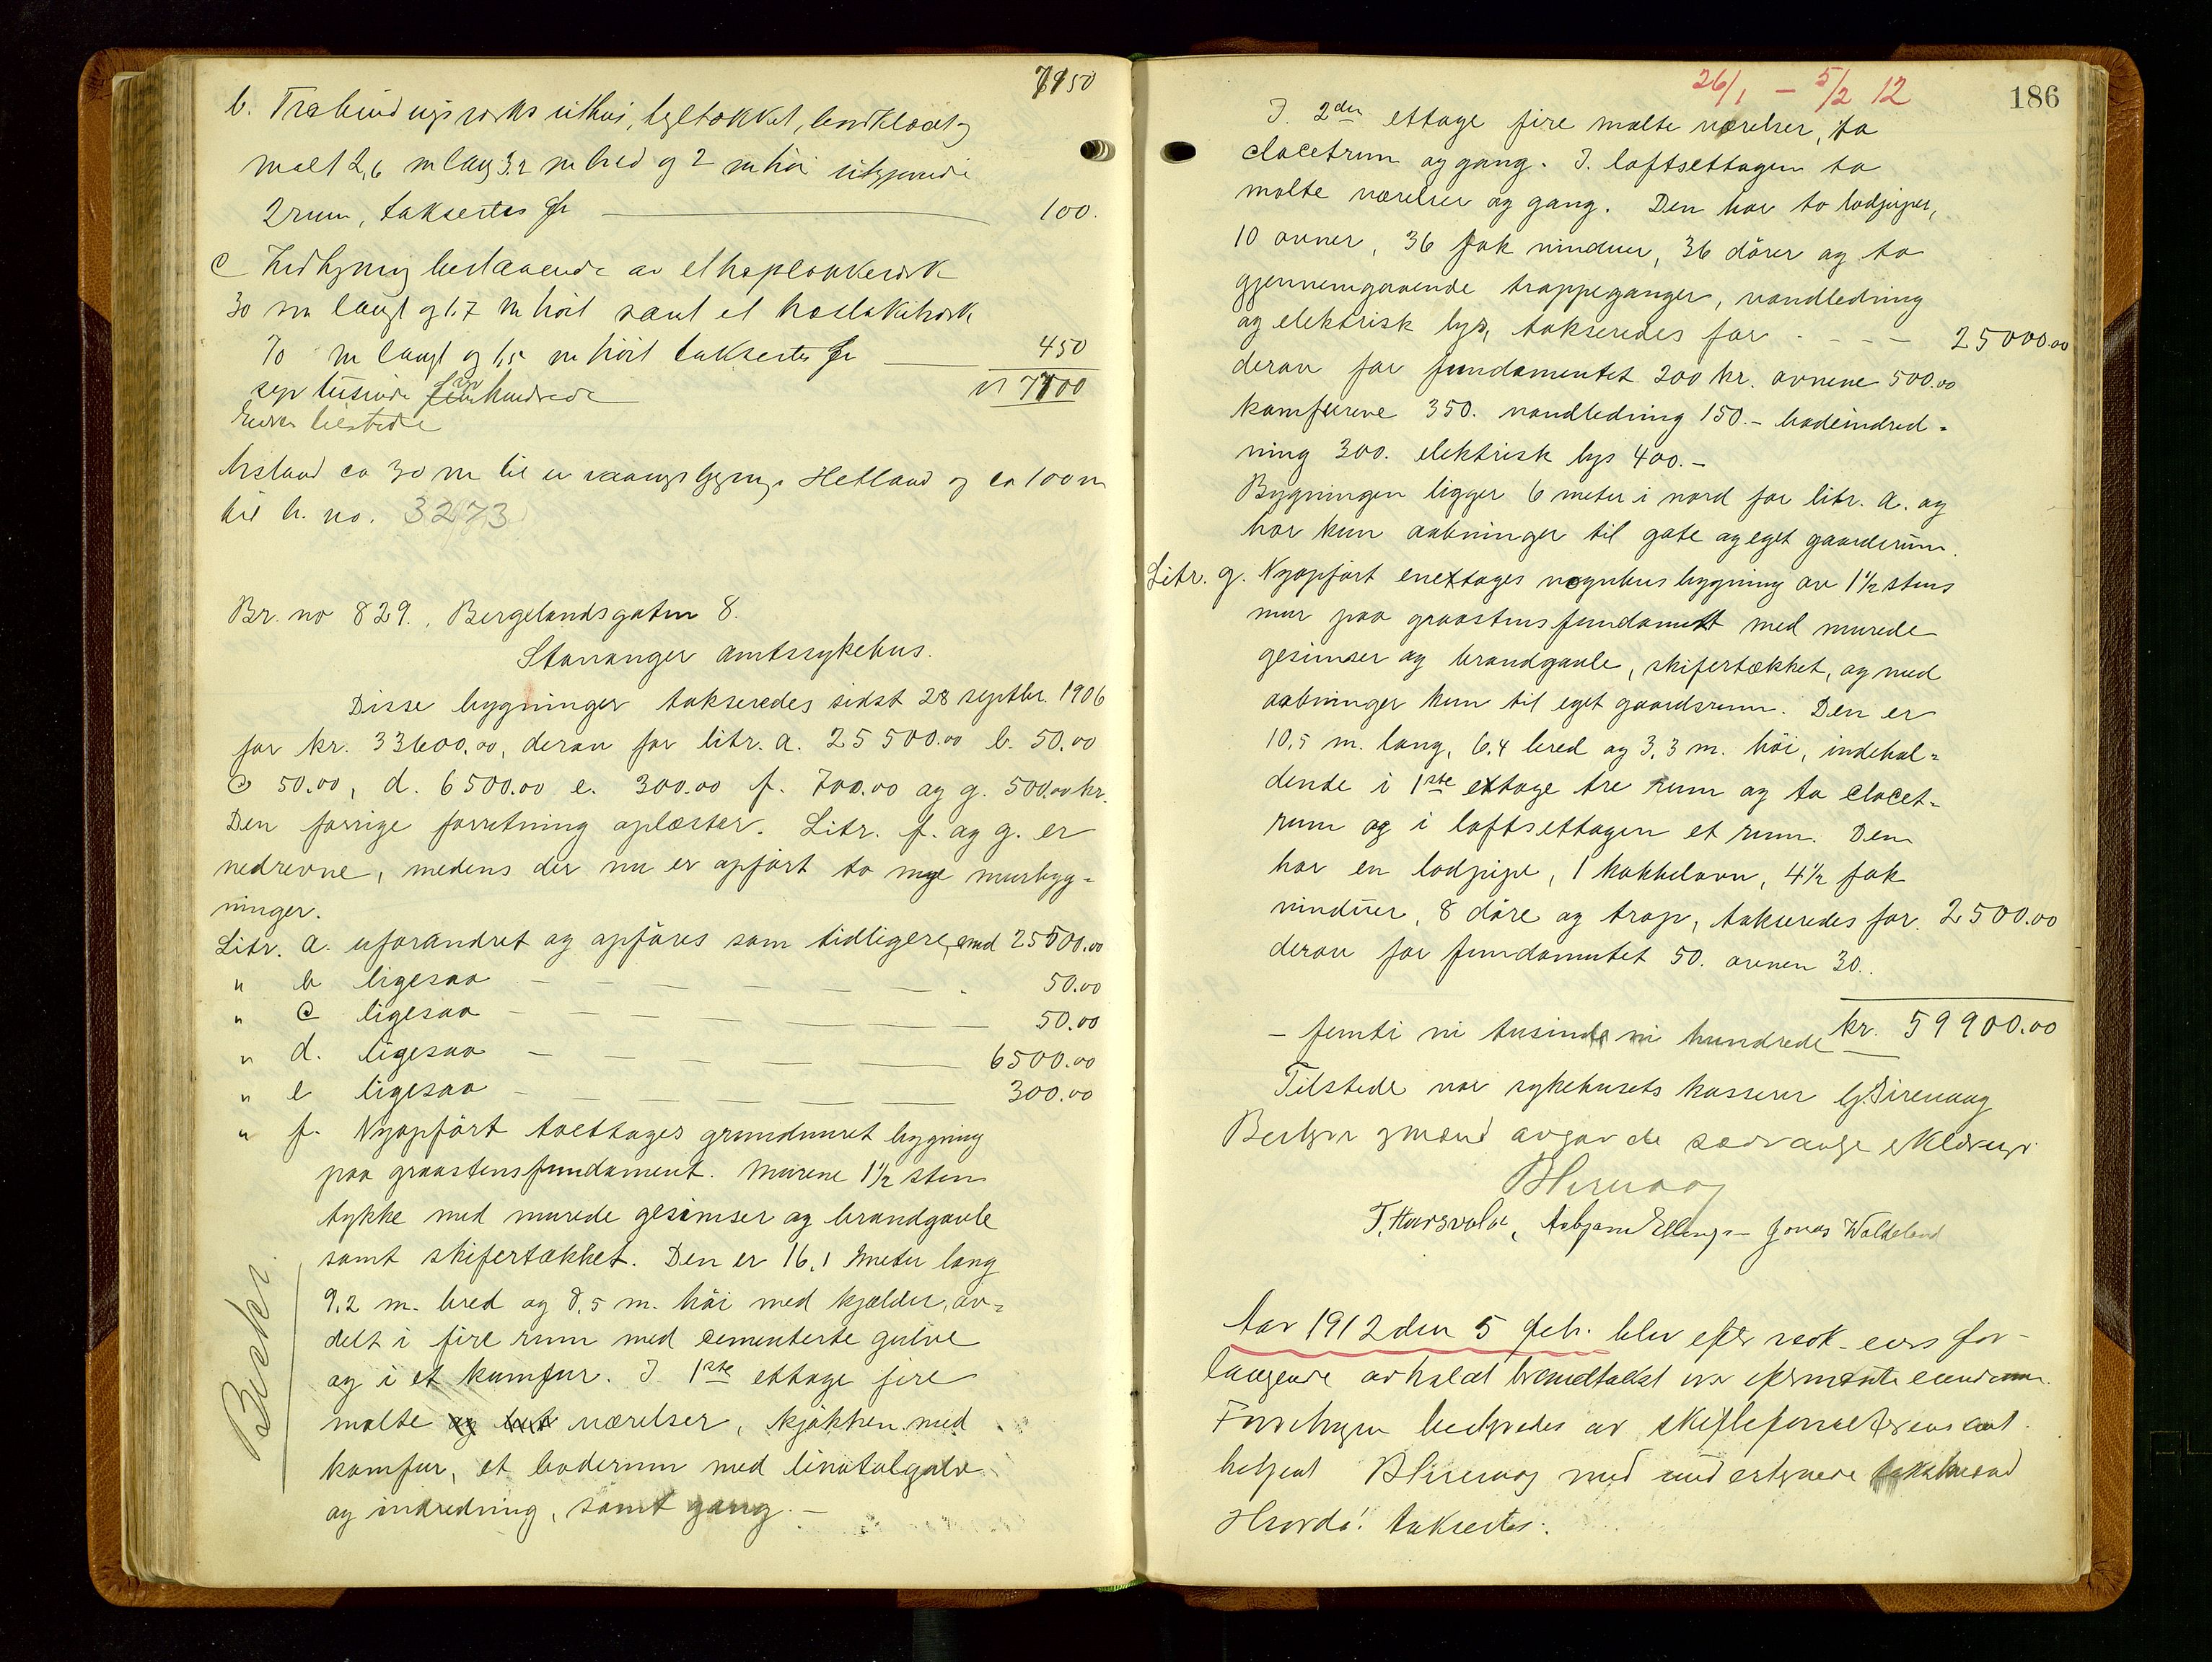 7150
b. Træbindingsverks uthus, tegltækket, bordklædt og
malt 2,6 m lang 3,2 m bred og 2 m høi utgjørende
2 rum, taksertes for 100.
c bestaaende av et
30 m langt og 1,7 m høit samt et
70 m langt og 1,5 m høit taksertes for 450
7700
syv tusinde syv hundrede
kroner tilstede
Avstand ca 30 m til en Hetland og ca 100 m
til br. no. 3273
Br. no 829., Bergelandsgaten 8.
Stavanger amtssykehus.
Disse bygninger takseredes sidst 28 septbr. 1906
for kr. 33600.00, derav for litr. a. 25500.00 b. 50.00
c 50.00, d. 6500.00 e. 300.00 f. 700.00 og g. 500.00 kr.
Den forrige forretning oplæstes. Litr. f. og g. er
nedrevne, medens der nu er opført to nye murbyg-
ninger.
Litr. a. uforandret og opføres som tidligere, med 25500.00
" b ligesaa 50.00
" c ligesaa 50.00
" d. ligesaa 6500.00
" e ligesaa 300.00
" f. Nyopført toettages grundmuret bygning
paa graastensfundament. Murene 1½ sten
tykke med murede gesimser og brandgavle
samt skifertækket. Den er 16,1 meter lang
9,2 m. bred og 8,5 m. høi med kjælder, av-
delt i fire rum med cementerte gulve
og i et kumfur. I 1ste ettage fire
malte og værelser, kjøkken med
komfur, et baderum med linotolgulv
og indredning, samt gang. –
26/1 – 5/2 12
186
I 2den ettage fire malte værelser, to
clocetrum og gang. I loftsettagen to
malte værelser og gang. Den har to lodpiper,
10 ovner, 36 fak vinduer, 36 dører og to
gjennemgaaende trappeganger, vandledning
og elektrisk lys, takseredes for 25000.00
derav for fundamentet 200 kr. ovnene 500.00
komfurene 350. vandledning 150.- badeindred-
ning 300. elektrisk lys 400.-
Bygningen ligger 6 meter i nord for litr. a. og
har kun aabninger til gate og eget gaardsrum.
Litr. g. Nyopført enettages vognhus bygning av 1½ stens
mur paa graastens fundament med murede
gesimser og brandgavle, skifertækket, og med
aabninger kun til eget gaardsrum. Den er
10,5 m. lang, 6,4 bred og 3,3 m. høi, indehol-
dende i 1ste ettage tre rum og to clocet-
rum og i loftsettagen et rum. Den
har en lodpipe, 1 kakkelovn, 4½ fak
vinduer, 8 døre og trap, takseredes for 2500.00
derav for fundamentet 50. ovnen 30.
kr. 59900.00
- femti ni tusinde ni hundrede
Tilstede var sykehusets kasserer Sirevaag
Bestyrer og mænd avgav de sedvanlige erklæringer.
B Sirevaag
T. Haarsvola, Asbjørn Ellings– Jonas Waldeland
Aar 1912 den 5 feb. blev efter eiers for-
langende avholdt brandtakst over efternævnte eiendomme.
Forretningen bestyredes av
B Sirevaag med undertegnede takstmænd
Hvorda: taksertes:
Besk.